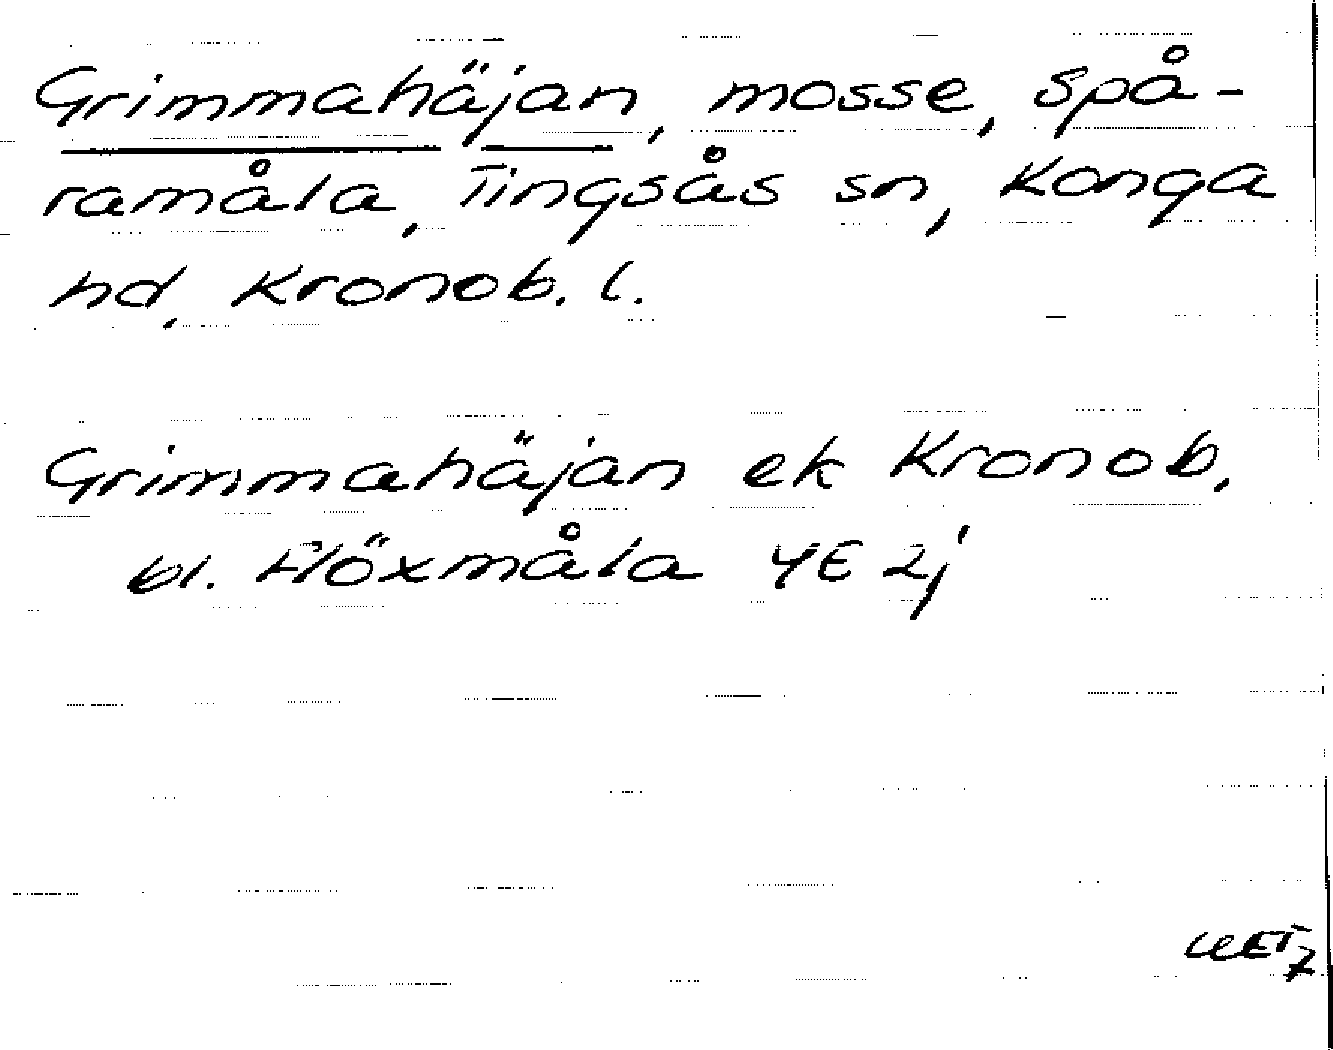 Grimmahäjan, mosse, Spå-
ramåla, Tingsås sn, Konga
hd, Kronob. l.
Grimmahäjan ek Kronob.
bl. Flöxmåla 4E 2j